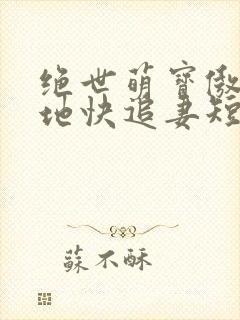 绝世萌寶傲
地快追妻短
蘇不酥